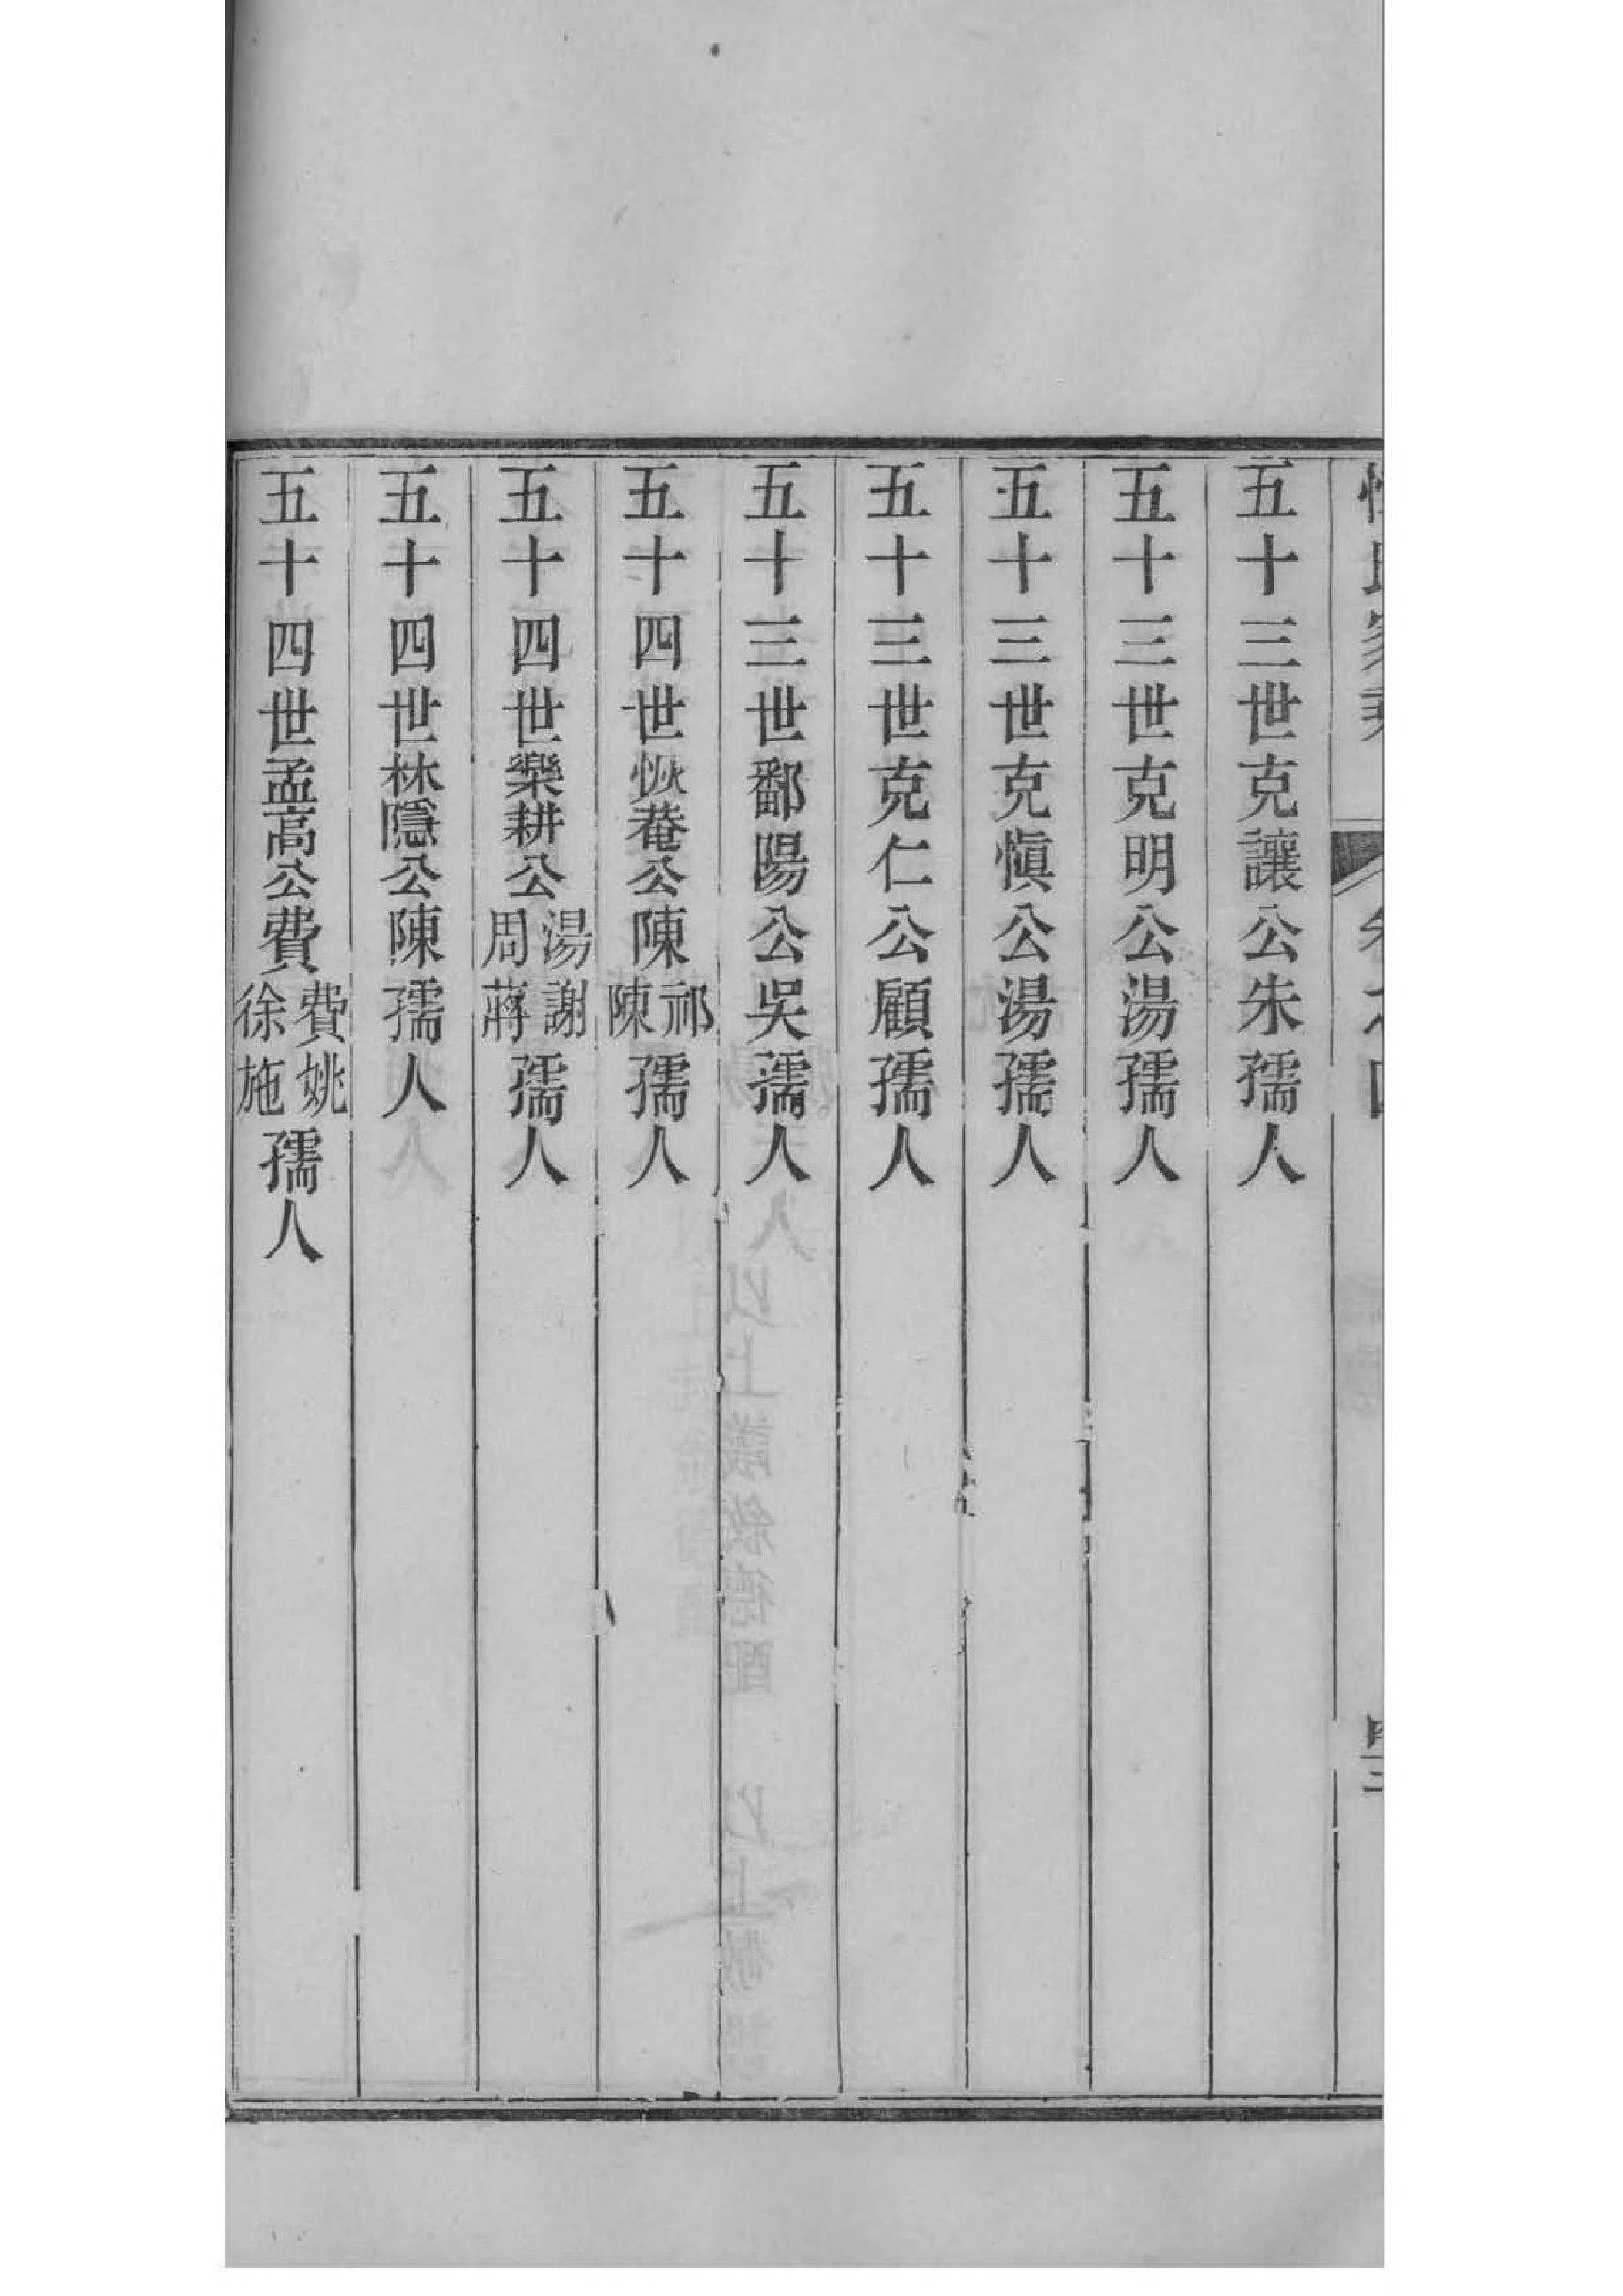 五十三世克讓公朱孺人
五十三世克明公湯孺人
五十三世克慎公湯孺人
五十三世克仁公顧孺人
五十三世鄱陽公吳孺人
五十四世恢菴公陳祁陳孺人
五十四世樂耕公湯謝周蔣孺人
五十四世林隱公陳孺人
五十四世孟高公費費姚徐施孺人